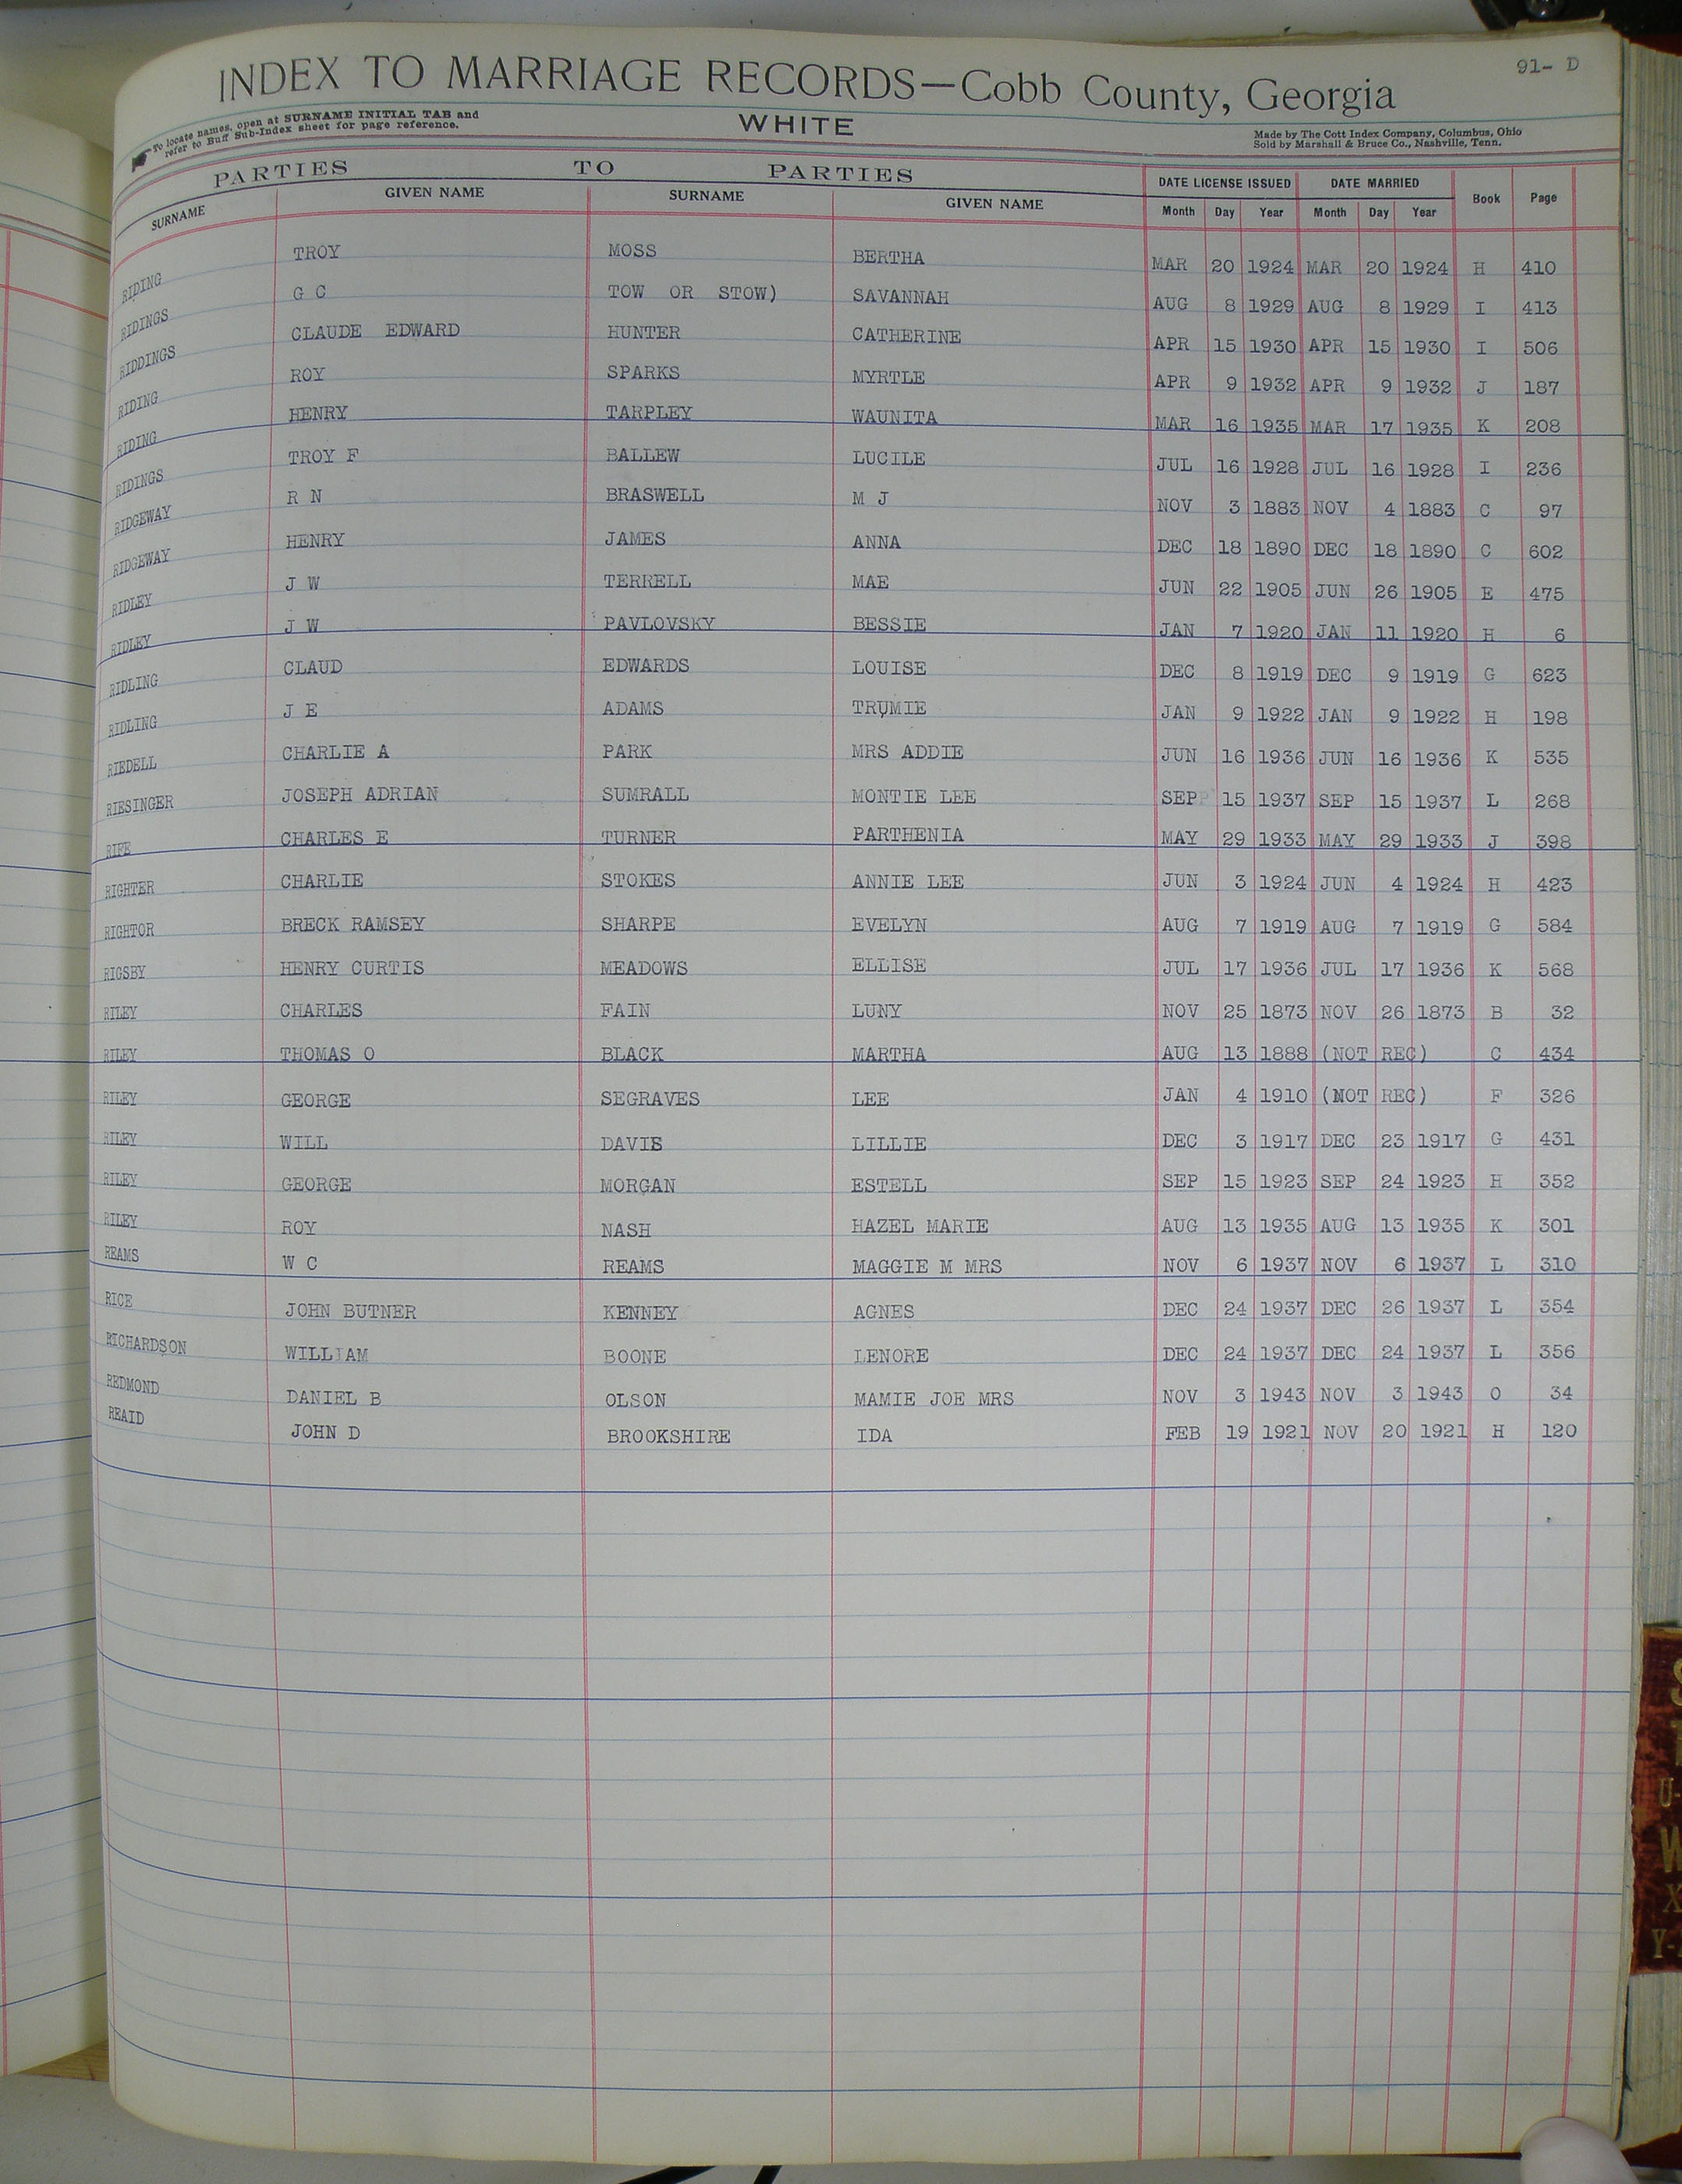 91- D
INDEX TO MARRIAGE RECORDS—Cobb County, Georgia
To locate names, open at SURNAME INITIAL TAB and
refer to Buff Sub-Index sheet for page reference.
WHITE
Made by The Cott Index Company, Columbus, Ohio
Sold by Marshall & Bruce Co., Nashville, Tenn.
PARTIES TO PARTIES DATE LICENSE ISSUED DATE MARRIED Book Page
SURNAME GIVEN NAME SURNAME GIVEN NAME Month Day Year Month Day Year
RIDING TROY MOSS BERTHA MAR 20 1924 MAR 20 1924 H 410
RIDINGS G C TOW OR STOW) SAVANNAH AUG 8 1929 AUG 8 1929 I 413
RIDDINGS CLAUDE EDWARD HUNTER CATHERINE APR 15 1930 APR 15 1930 I 506
RIDING ROY SPARKS MYRTLE APR 9 1932 APR 9 1932 J 187
RIDING HENRY TARPLEY WAUNITA MAR 16 1935 MAR 17 1935 K 208
RIDINGS TROY F BALLEW LUCILE JUL 16 1928 JUL 16 1928 I 236
RIDGEWAY R N BRASWELL M J NOV 3 1883 NOV 4 1883 C 97
RIDGEWAY HENRY JAMES ANNA DEC 18 1890 DEC 18 1890 C 602
RIDLEY J W TERRELL MAE JUN 22 1905 JUN 26 1905 E 475
RIDLEY J W PAVLOVSKY BESSIE JAN 7 1920 JAN 11 1920 H 6
RIDLING CLAUD EDWARDS LOUISE DEC 8 1919 DEC 9 1919 G 623
RIDLING J E ADAMS TRUMIE JAN 9 1922 JAN 9 1922 H 198
RIEDELL CHARLIE A PARK MRS ADDIE JUN 16 1936 JUN 16 1936 K 535
RIESINGER JOSEPH ADRIAN SUMRALL MONTIE LEE SEP 15 1937 SEP 15 1937 L 268
RIFE CHARLES E TURNER PARTHENIA MAY 29 1933 MAY 29 1933 J 398
RIGHTER CHARLIE STOKES ANNIE LEE JUN 3 1924 JUN 4 1924 H 423
RIGHTOR BRECK RAMSEY SHARPE EVELYN AUG 7 1919 AUG 7 1919 G 584
RIGSBY HENRY CURTIS MEADOWS ELLISE JUL 17 1936 JUL 17 1936 K 568
RILEY CHARLES FAIN LUNY NOV 25 1873 NOV 26 1873 B 32
RILEY THOMAS O BLACK MARTHA AUG 13 1888 (NOT REC) C 434
RILEY GEORGE SEGRAVES LEE JAN 4 1910 (NOT REC) F 326
RILEY WILL DAVIS LILLIE DEC 3 1917 DEC 23 1917 G 431
RILEY GEORGE MORGAN ESTELL SEP 15 1923 SEP 24 1923 H 352
RILEY ROY NASH HAZEL MARIE AUG 13 1935 AUG 13 1935 K 301
REAMS W C REAMS MAGGIE M MRS NOV 6 1937 NOV 6 1937 L 310
RICE JOHN BUTNER KENNEY AGNES DEC 24 1937 DEC 26 1937 L 354
RICHARDSON WILLIAM BOONE LENORE DEC 24 1937 DEC 24 1937 L 356
REDMOND DANIEL B OLSON MAMIE JOE MRS NOV 3 1943 NOV 3 1943 O 34
REAID JOHN D BROOKSHIRE IDA FEB 19 1921 NOV 20 1921 H 120